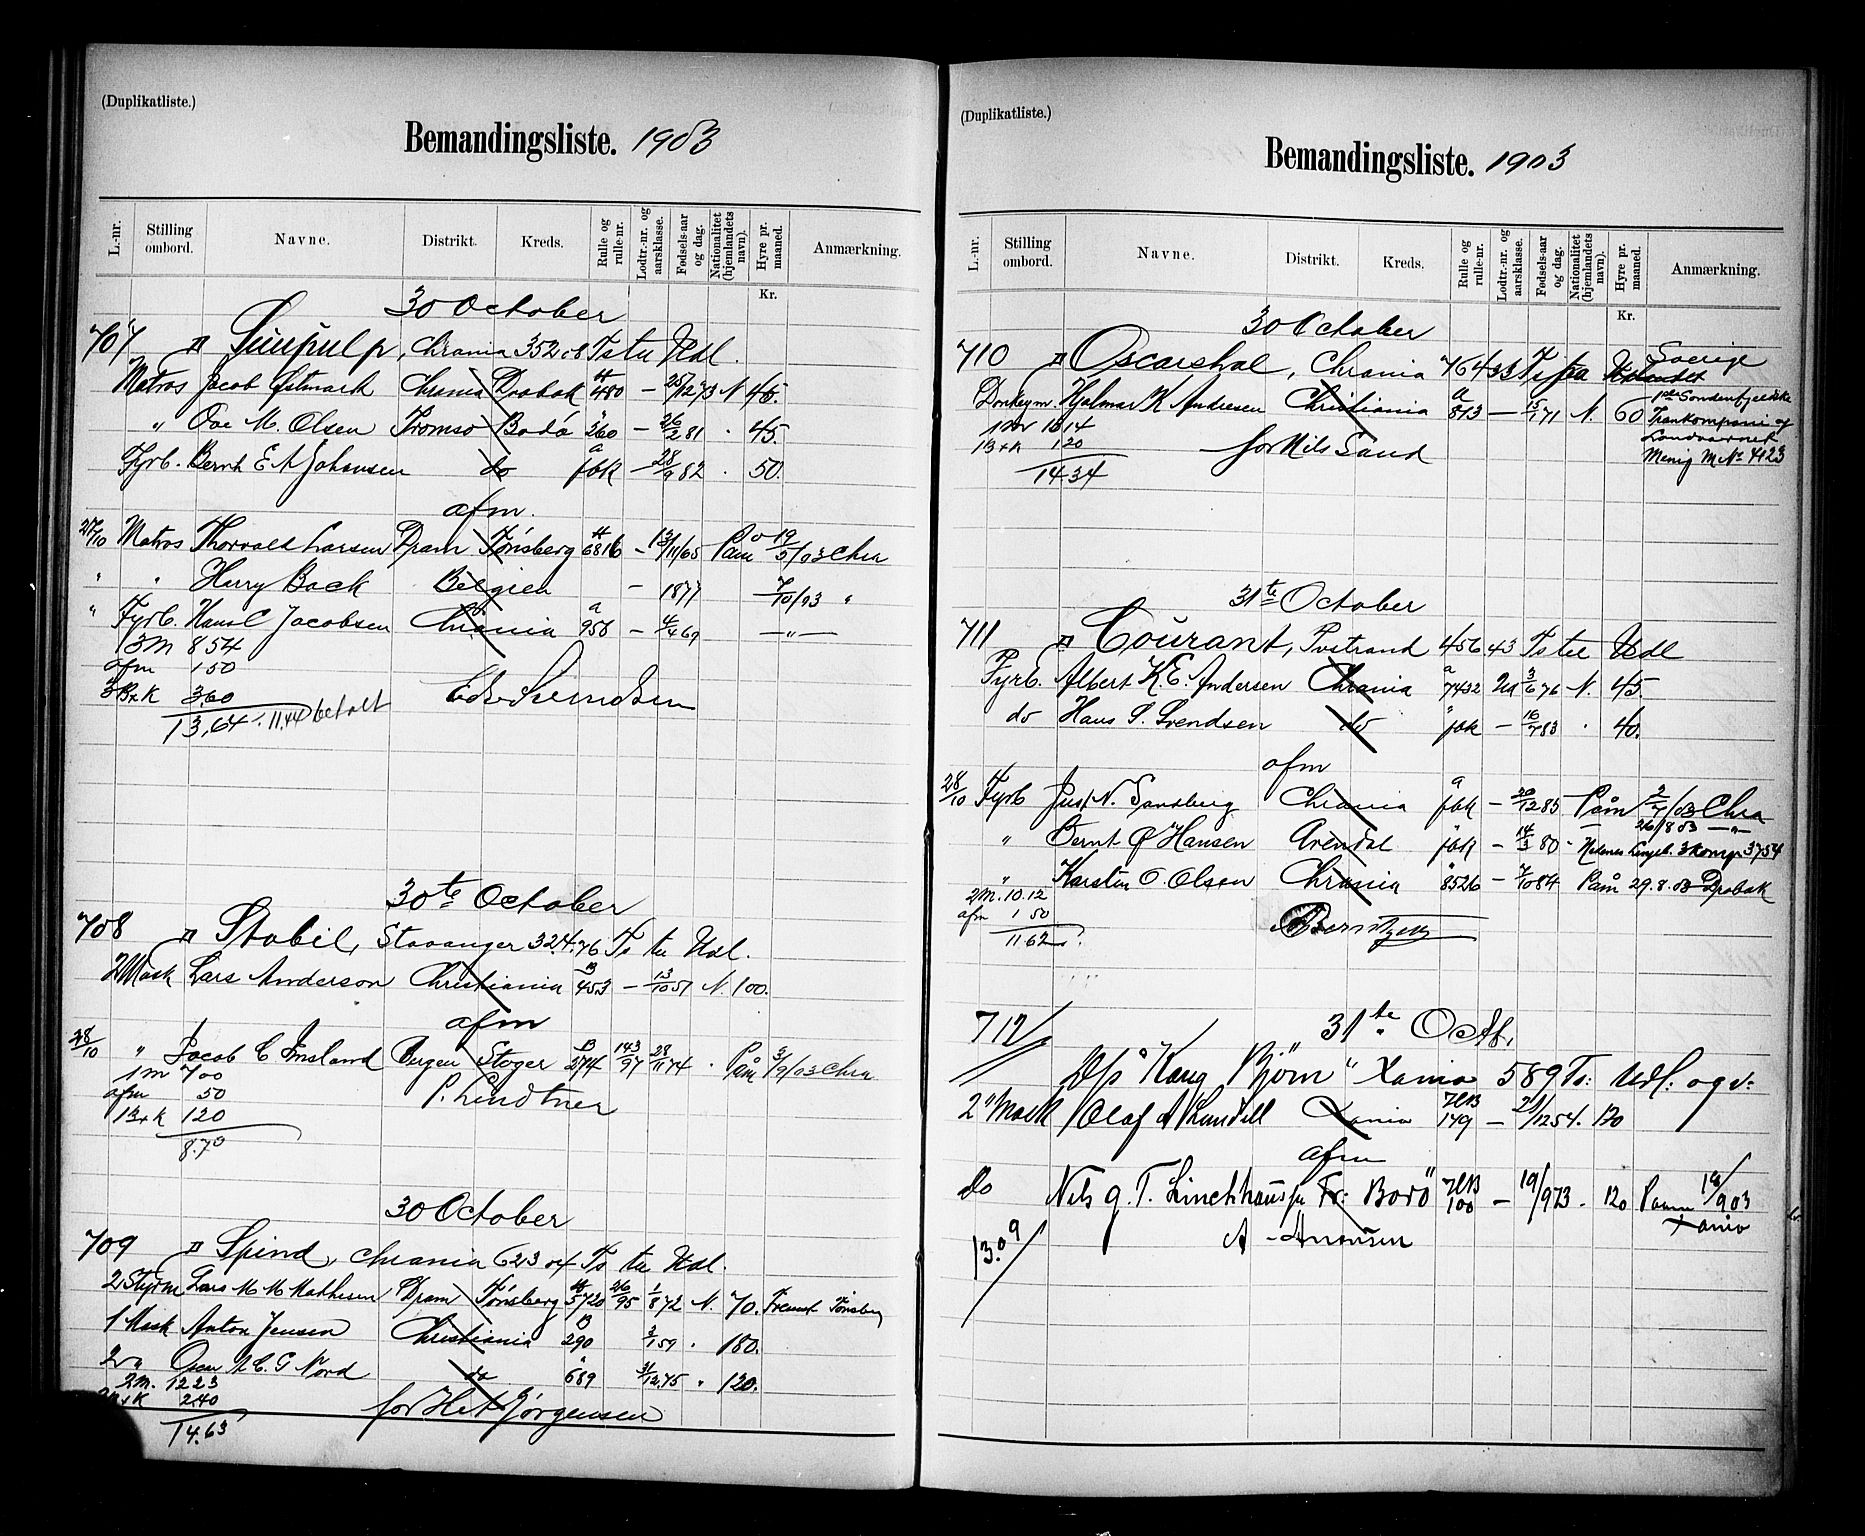 (Duplikatliste.)
Bemandingsliste. 1903
L.-nr. Stilling ombord. Navne. Distrikt. Kreds. Rulle og rulle-nr. Lodtr.-nr. og aarsklasse. Fødsels-aar og dag. Nationalitet (hjemlandets navn). Hyre pr. maaned. Anmærkning.
Kr.
30 October
707 Sunpulp, Chrania 352.08 Ts til Udl.
Matros Jacob Østmark Chrania Drøbak 480 — 25/12 73 N 45.
" Ove M. Olsen Tromsø Bodø 260 — 26/2 81 . 45.
Fyrb. Bernh E A Johansen do a fbk — 28/9 82 . 50.
afm.
27/10 Matros Thorvald Larsen Dram Tønsberg 6816 — 13/11/65 Paam 19/5/03 Chra
" " Harry Back Belgien — 1877 7/10/03 "
" Fyrb. Hans C Jacobsen Chrania a 958 — 4/4 69 — " —
3 M 8 54
afm 1 50
3 B+K 3,60
13,64 11.44 betalt
Edv Svendsen
30te October
708 Stabil, Stavanger 324.76 Ts til Udl.
2 Mask Lars Anderson Christiania B 453 — 13/10 51 N. 100.
afm
28/10 " Jacob C Imsland Bergen Stager B 274 143/97 28/11 74 . Paam 3/9/03 Chra
1 m 700
afm 50
1 B+K 120
8.70
P. Lindtner
30 October
709 Spind, Chrania 623 04 Ts til Udl.
2 Styrm Lars M M Mathisen Dram Tønsberg 5720 26/95 1/8 72 N. 70. Fremst Tønsberg
1 Mask Anton Jensen Christiania B 290 3/1 59 . 180.
2 " Oscar A C. G Nord do " 689 31/12.75 " 120.
3 M. 12 23
B+K 2.40
14.63
for H Jørgensen
(Duplikatliste.)
Bemandingsliste. 1903
L.-nr. Stilling ombord. Navne. Distrikt. Kreds. Rulle og rulle-nr. Lodtr.-nr. og aarsklasse. Fødsels-aar og dag. Nationalitet (hjemlandets navn). Hyre pr. maaned. Anmærkning.
Kr.
30 October
710 Oscarshal, Chrania 764 33 Ts paa Sverige
Donkeym. Hjalmar K Andresen Christiania a 813 — 15/1 71 N. 60 1ste Søndenfjeldske
Trænkompani af
Landværnet
Menig M No 4123
1 M 13 14
1 B+K 120
14 34
for Nils Sand
31te October
711 Courant, Porsgrund 456 43 Ts til Udl
Fyrb. Albert K. E. Andersen Chrania a 7432 3/6 76 N. 45.
do Hans S. Svendsen do " fbk — 16/7 83 . 40.
afm
28/10 Fyrb Just N. Sandberg Chrania a fbk — 20/12 85 Paam 2/7/03 Chra
26/8 03 — " —
" Bernt O Hansen Arendal " fbk — 14/3 80 3 komp 3754
" Karsten O. Olsen Chrania " 8526 — 7/10 84 Paam 29.8.03 Drøbak
2 M. 10.12
afm 1 50
11 62
712 31te Octb.
D/s "Kong Bjørn" Xania 589 Ts: Udl: og v.
2 Mask Olaf A Lundell Xania HB 149 — 21/12 54. 120
afm
do Nils G. T. Linchhausen Fr: Borø HB 100 — 19/9 73 . 120 Paam 18/9 03
Xania
13.09
A Aronsen